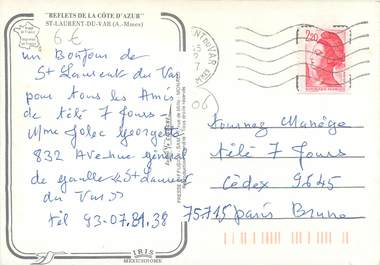 "REFLETS DE LA CÔTE D'AZUR"
ST-LAURENT-DU-VAR (A.-Mmes)
6 €
un Bonjour de
St Laurent du Var
pour tous les Amis
de télé 7 Jours
Mme Golec Georgette
832 Avenue général
de gaulle St Laurent
du Var
tél 93-07.81.38
IRIS
MEXICHROME
2,20
06
tournez Manège
télé 7 Jours
Cédex 9645
75715 Paris Brune